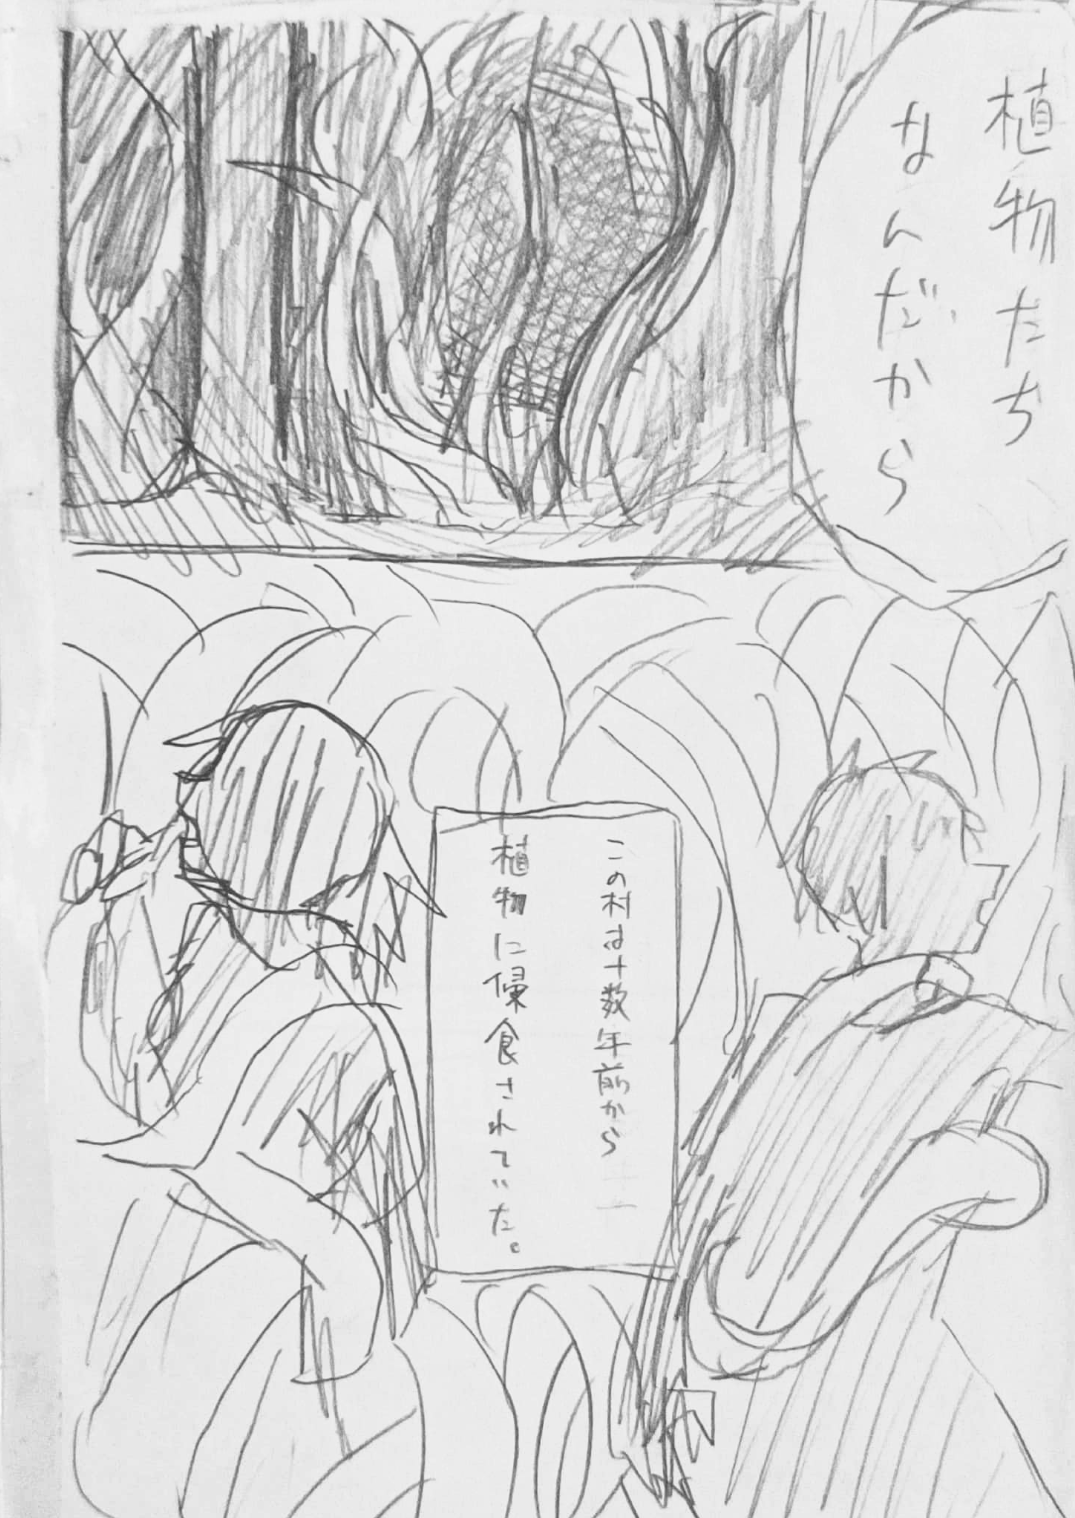 植物たち
なんだから
この村は十数年前から
植物に侵食されていた。